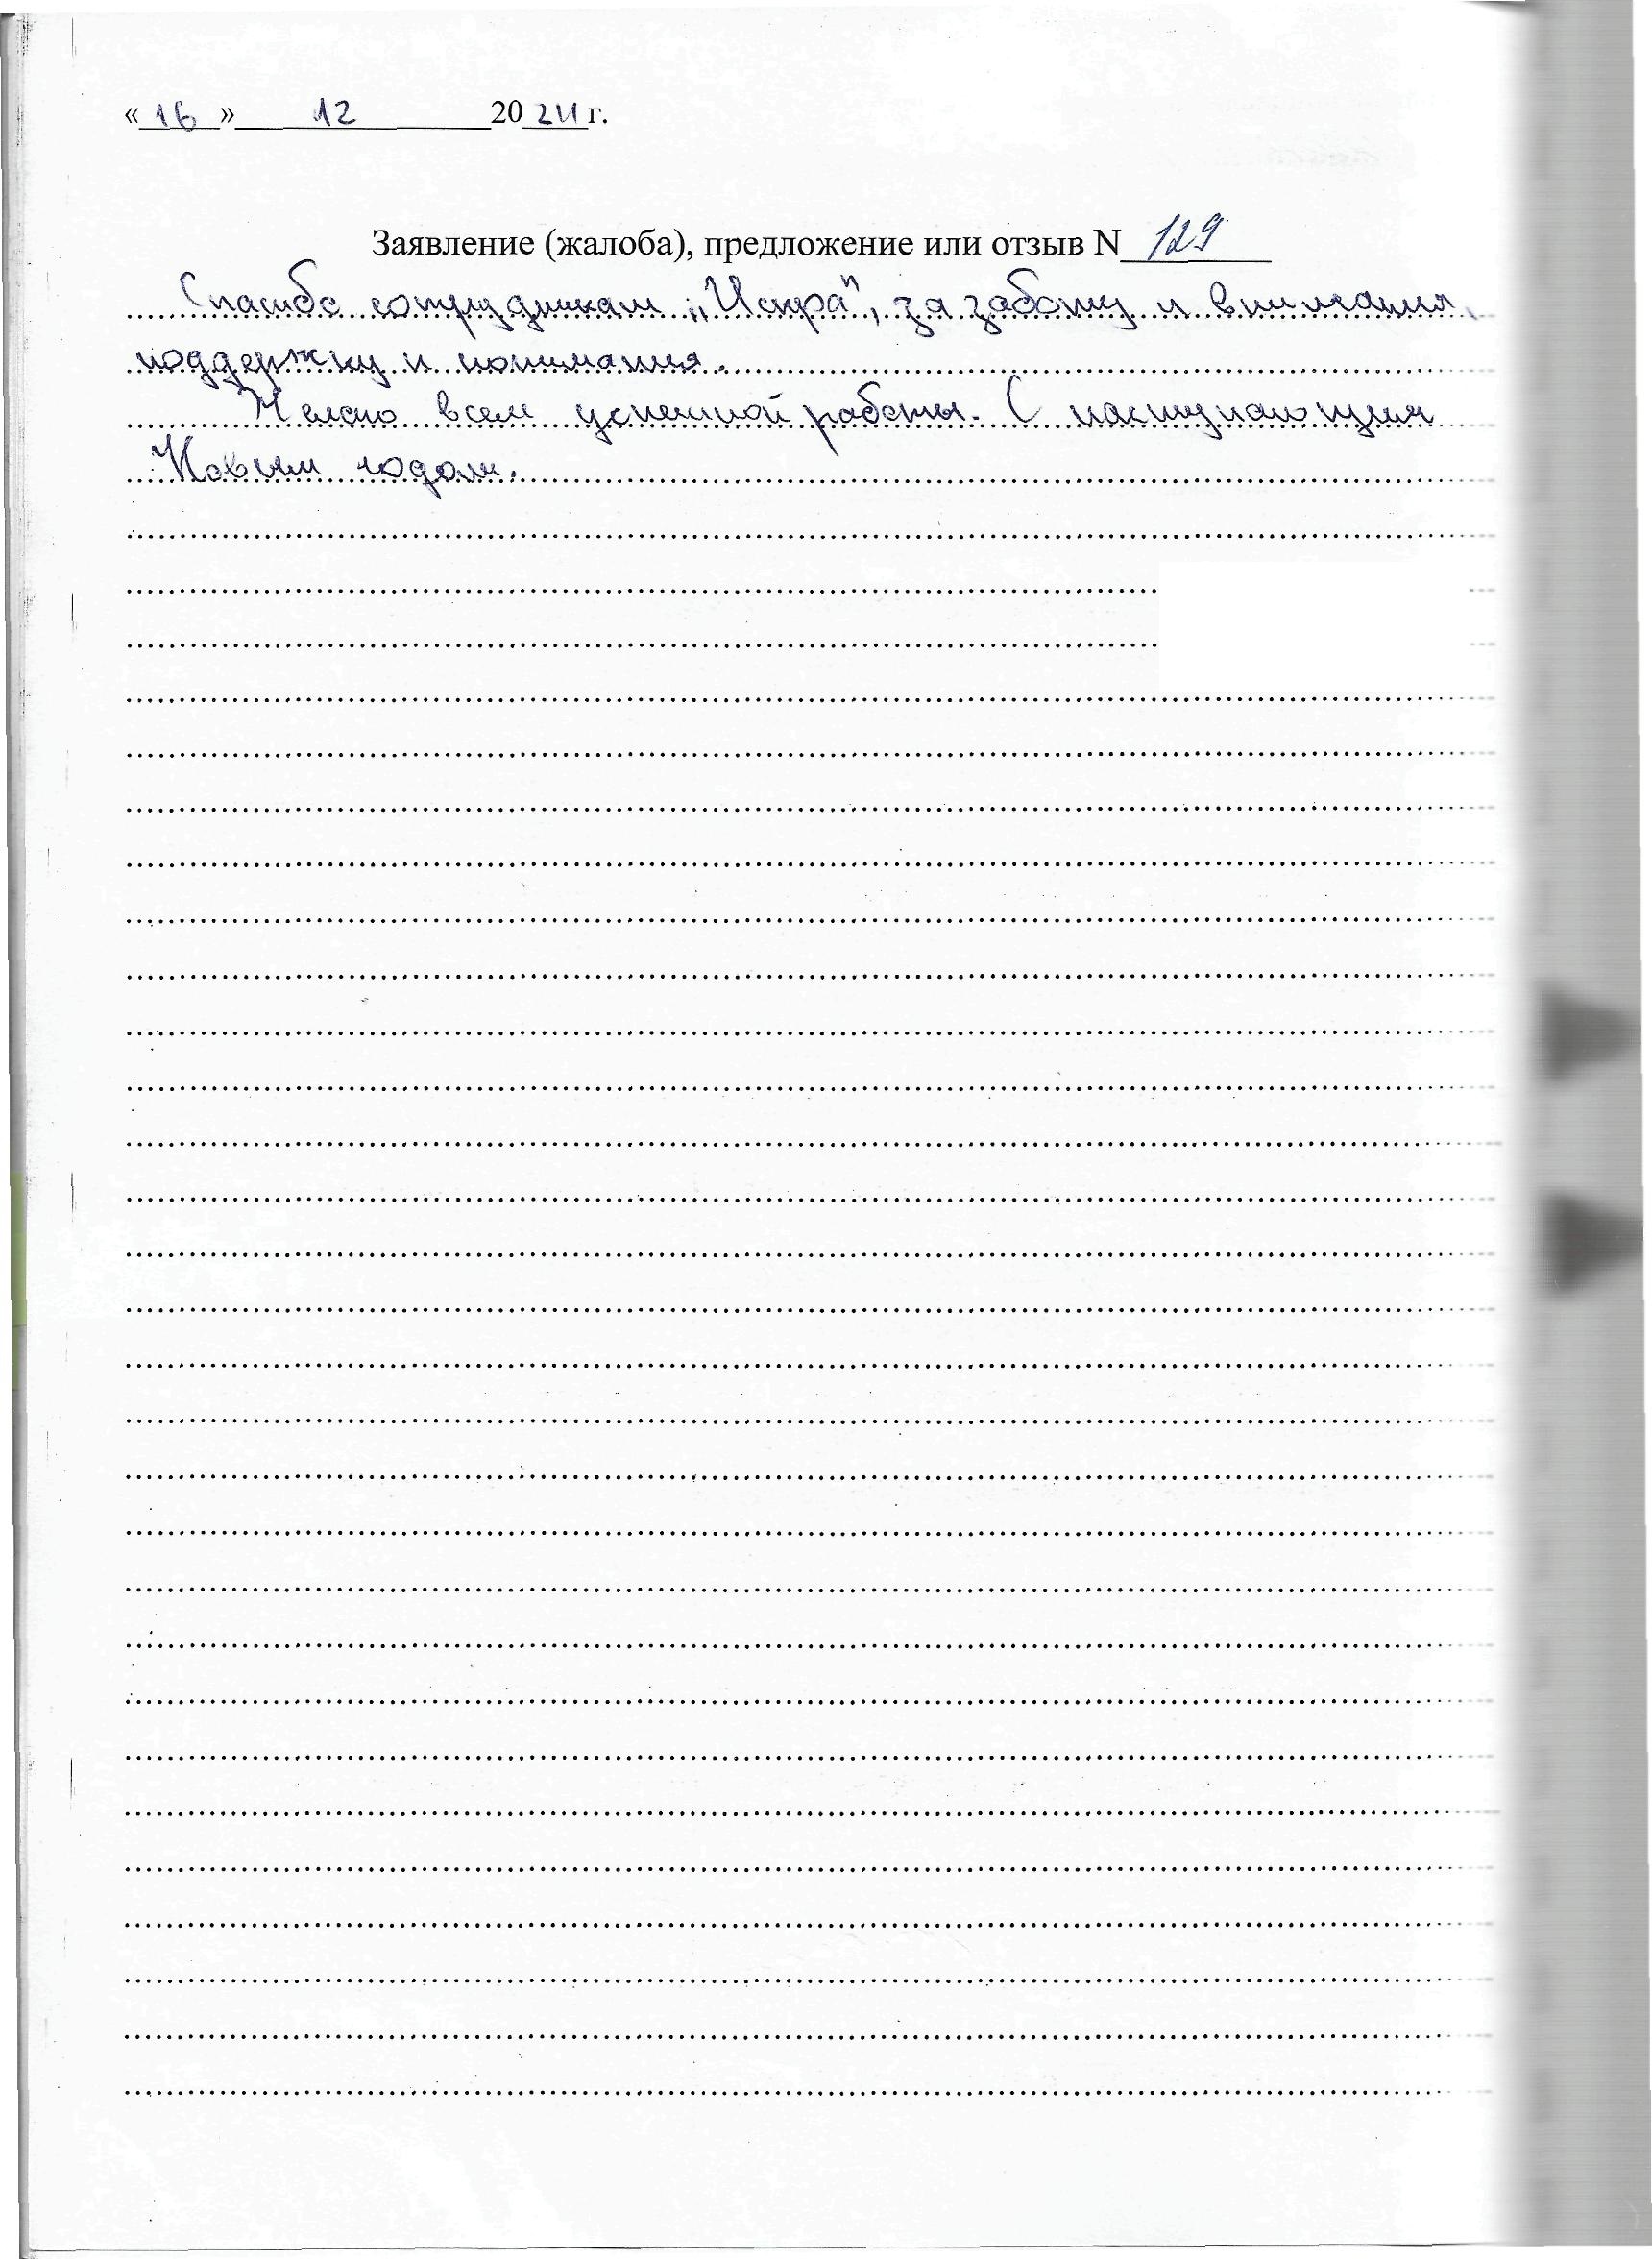 « 16 » 12 2024 г.
Заявление (жалоба), предложение или отзыв N 129
Спасибо сотрудникам „Искра", за заботу и внимания,
поддержку и понимания.
Желаю всем успешной работы. С наступающим
Новым годом.